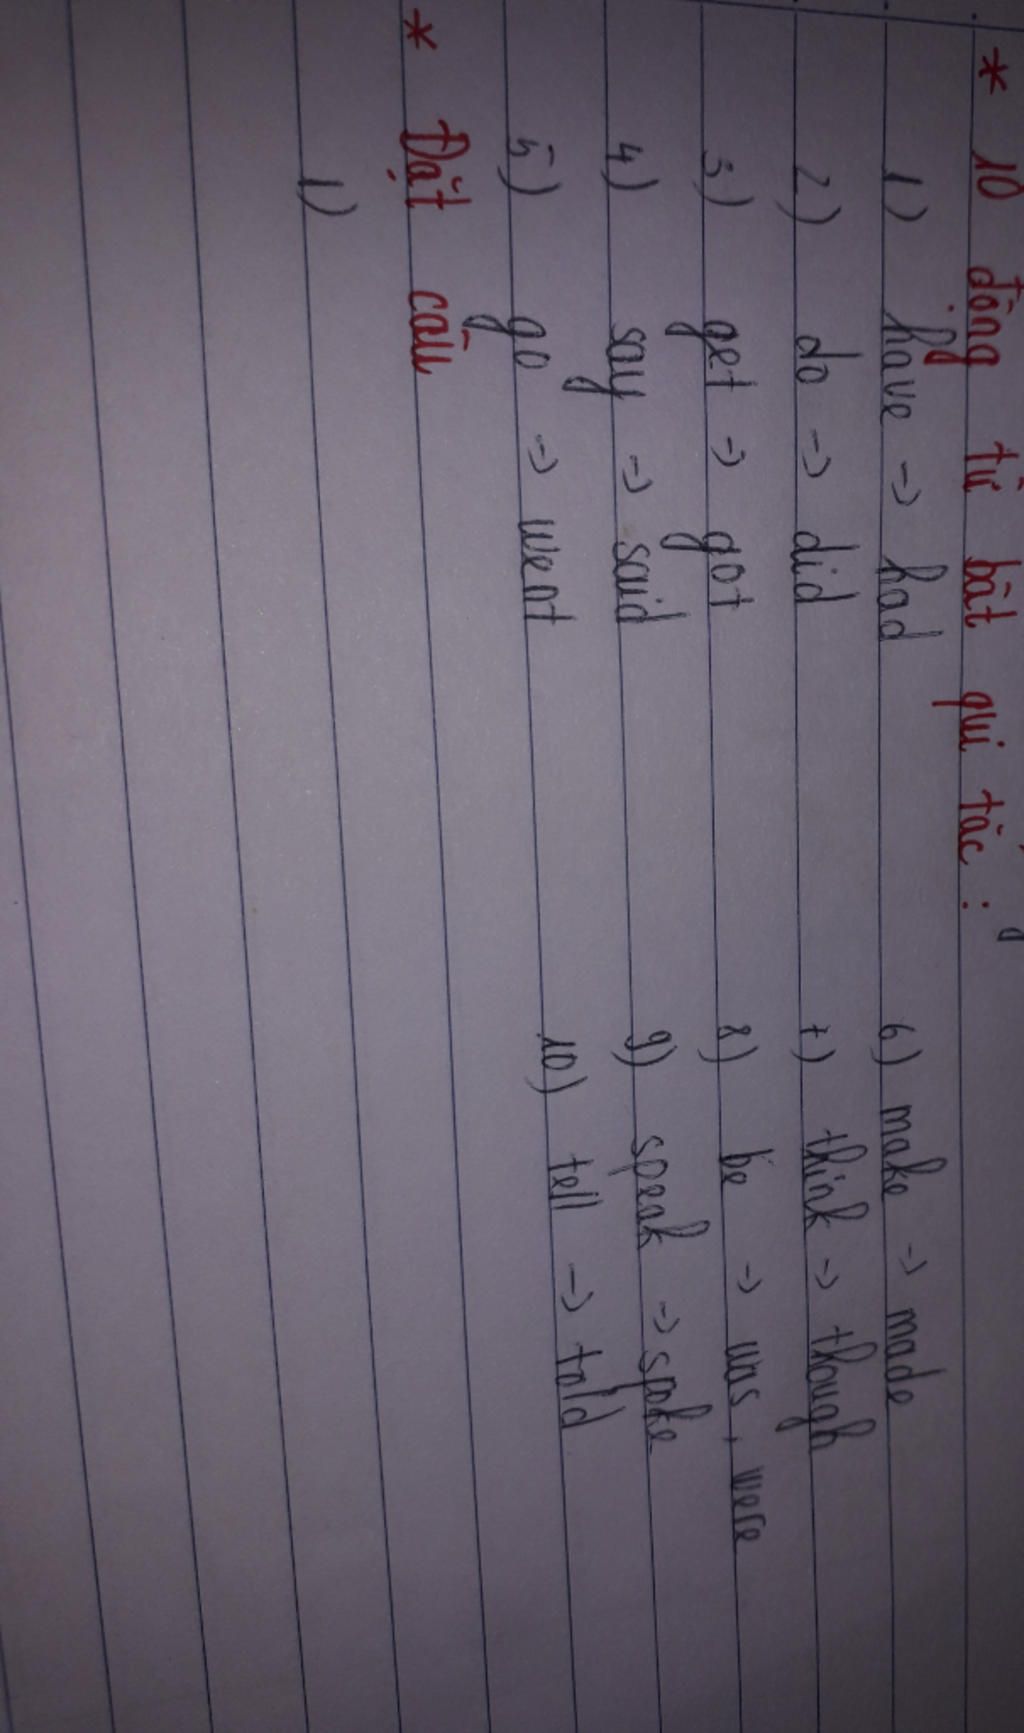 * 10 động từ bất qui tắc :
1) have -> had 6) make -> made
2) do -> did 7) think -> though
3) get -> got 8) be -> was, were
4) say -> said 9) speak -> spoke
5) go -> went 10) tell -> told
* Đặt câu
1)